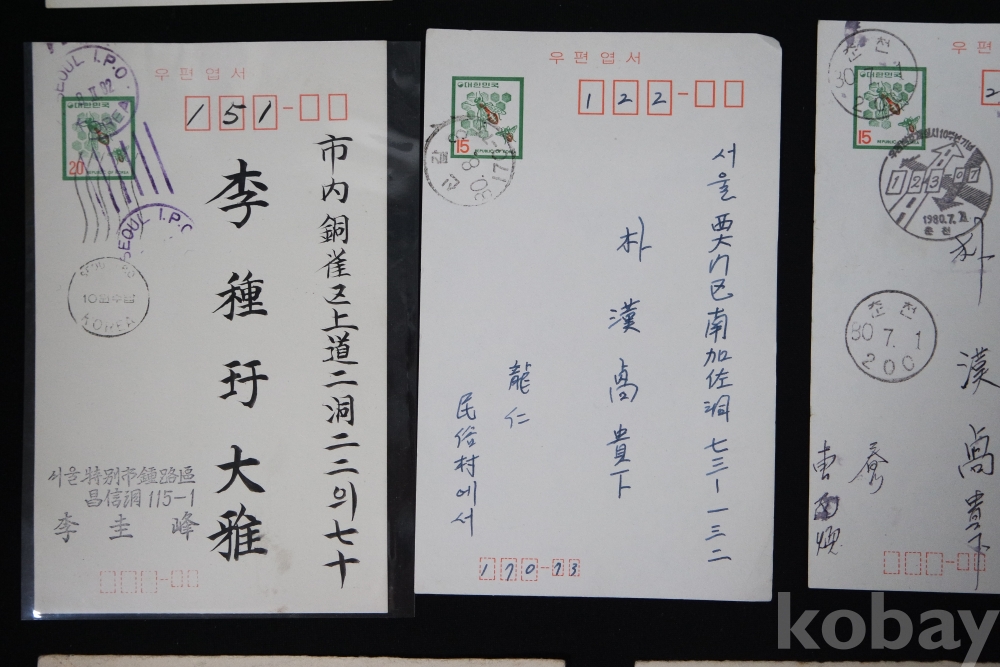 우편엽서
SEOUL I.P.O
대한민국
20
REPUBLIC OF KOREA
151
市内銅雀区上道二洞二二의七十
李種玗大雅
SEOUL I.P.O
KOREA
서울特別市鍾路區
昌信洞 115-1
李圭峰
우편엽서
대한민국
15
REPUBLIC OF KOREA
122
서울 西大门区南加佐洞 七三一一三二
朴漢卨貴下
龍仁
民俗村에서
170-73
우편
춘천
15
1 2 3-07
1980.7.1
춘천
춘천
80.7.1
200
朴漢卨貴下
kobay